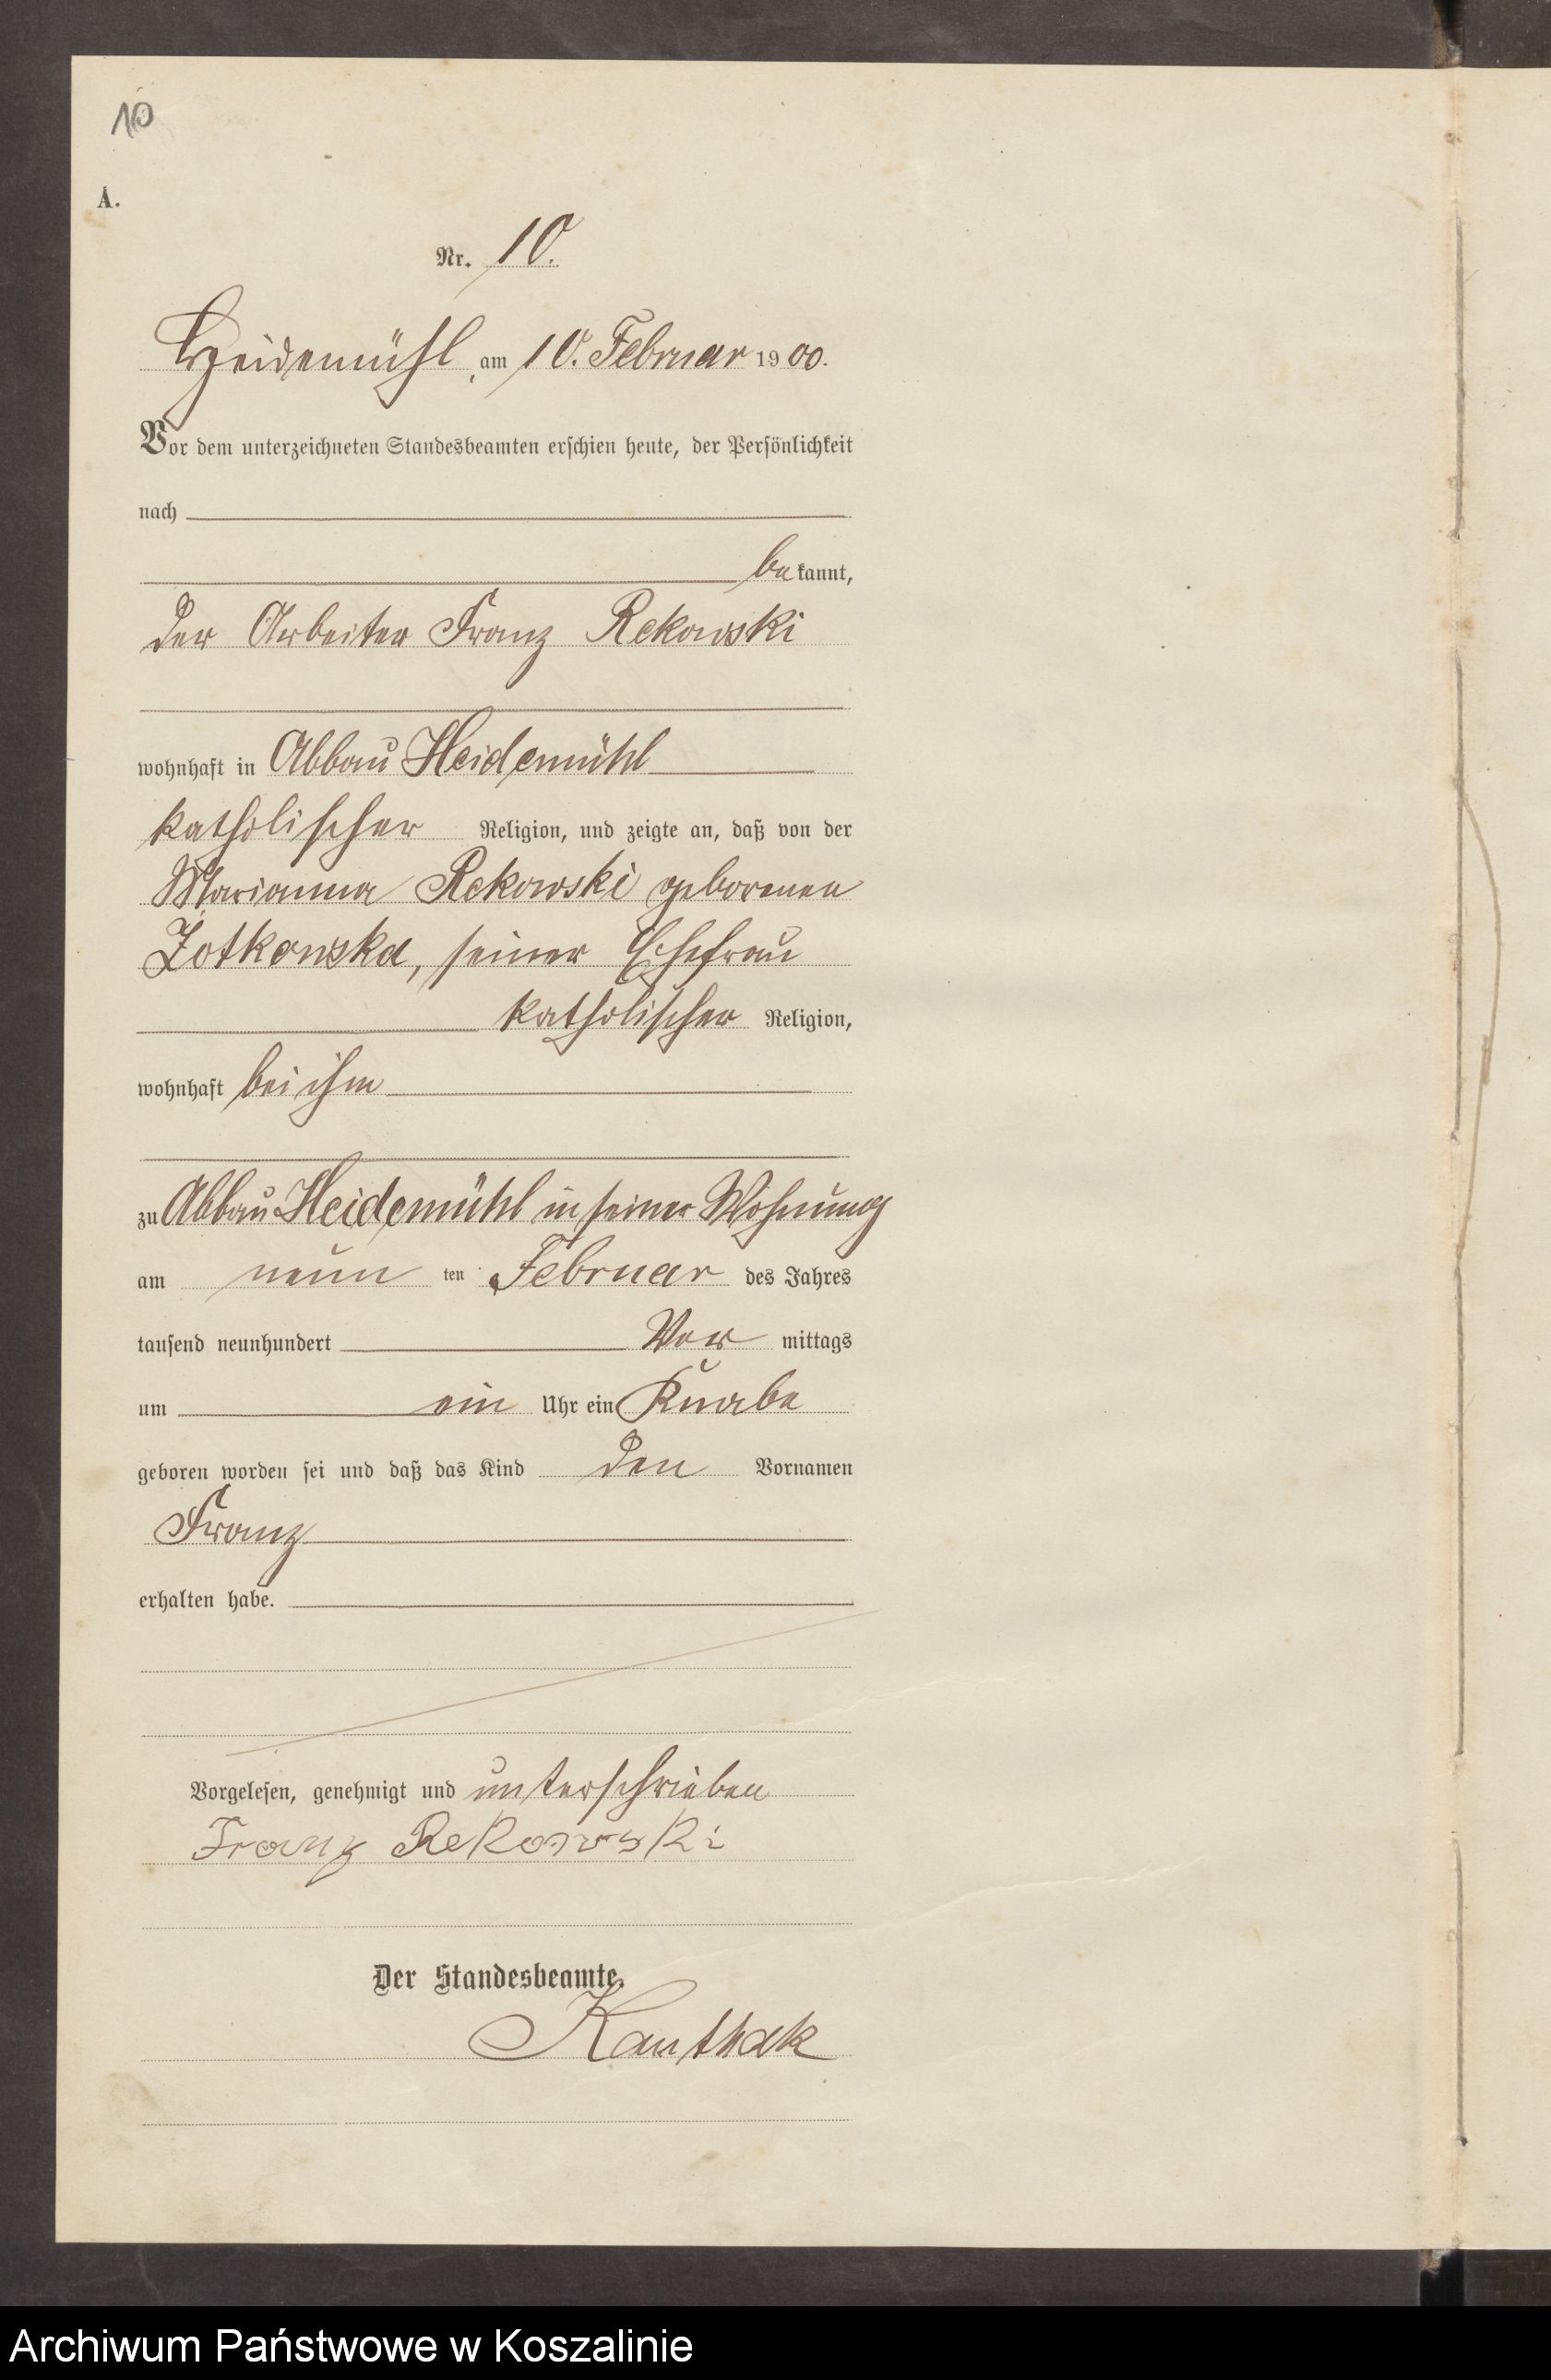 10
A.
Nr. 10.
Heidemühl, am 10. Februar 1900.
Vor dem unterzeichneten Standesbeamten erschien heute, der Persönlichkeit
nach
bekannt,
der Arbeiter Franz Rekowski
wohnhaft in Abbau Heidemühl
katholischer Religion, und zeigte an, daß von der
Marianna Rekowski geborenen
Zotkowska, seiner Ehefrau
katholischer Religion,
wohnhaft bei ihm
zu Abbau Heidemühl in seiner Wohnung
am neun ten Februar des Jahres
tausend neunhundert Vor mittags
um ein Uhr ein Knabe
geboren worden sei und daß das Kind den Vornamen
Franz
erhalten habe.
Vorgelesen, genehmigt und unterschrieben
Franz Rekowski
Der Standesbeamte.
Kanthak
Archiwum Państwowe w Koszalinie